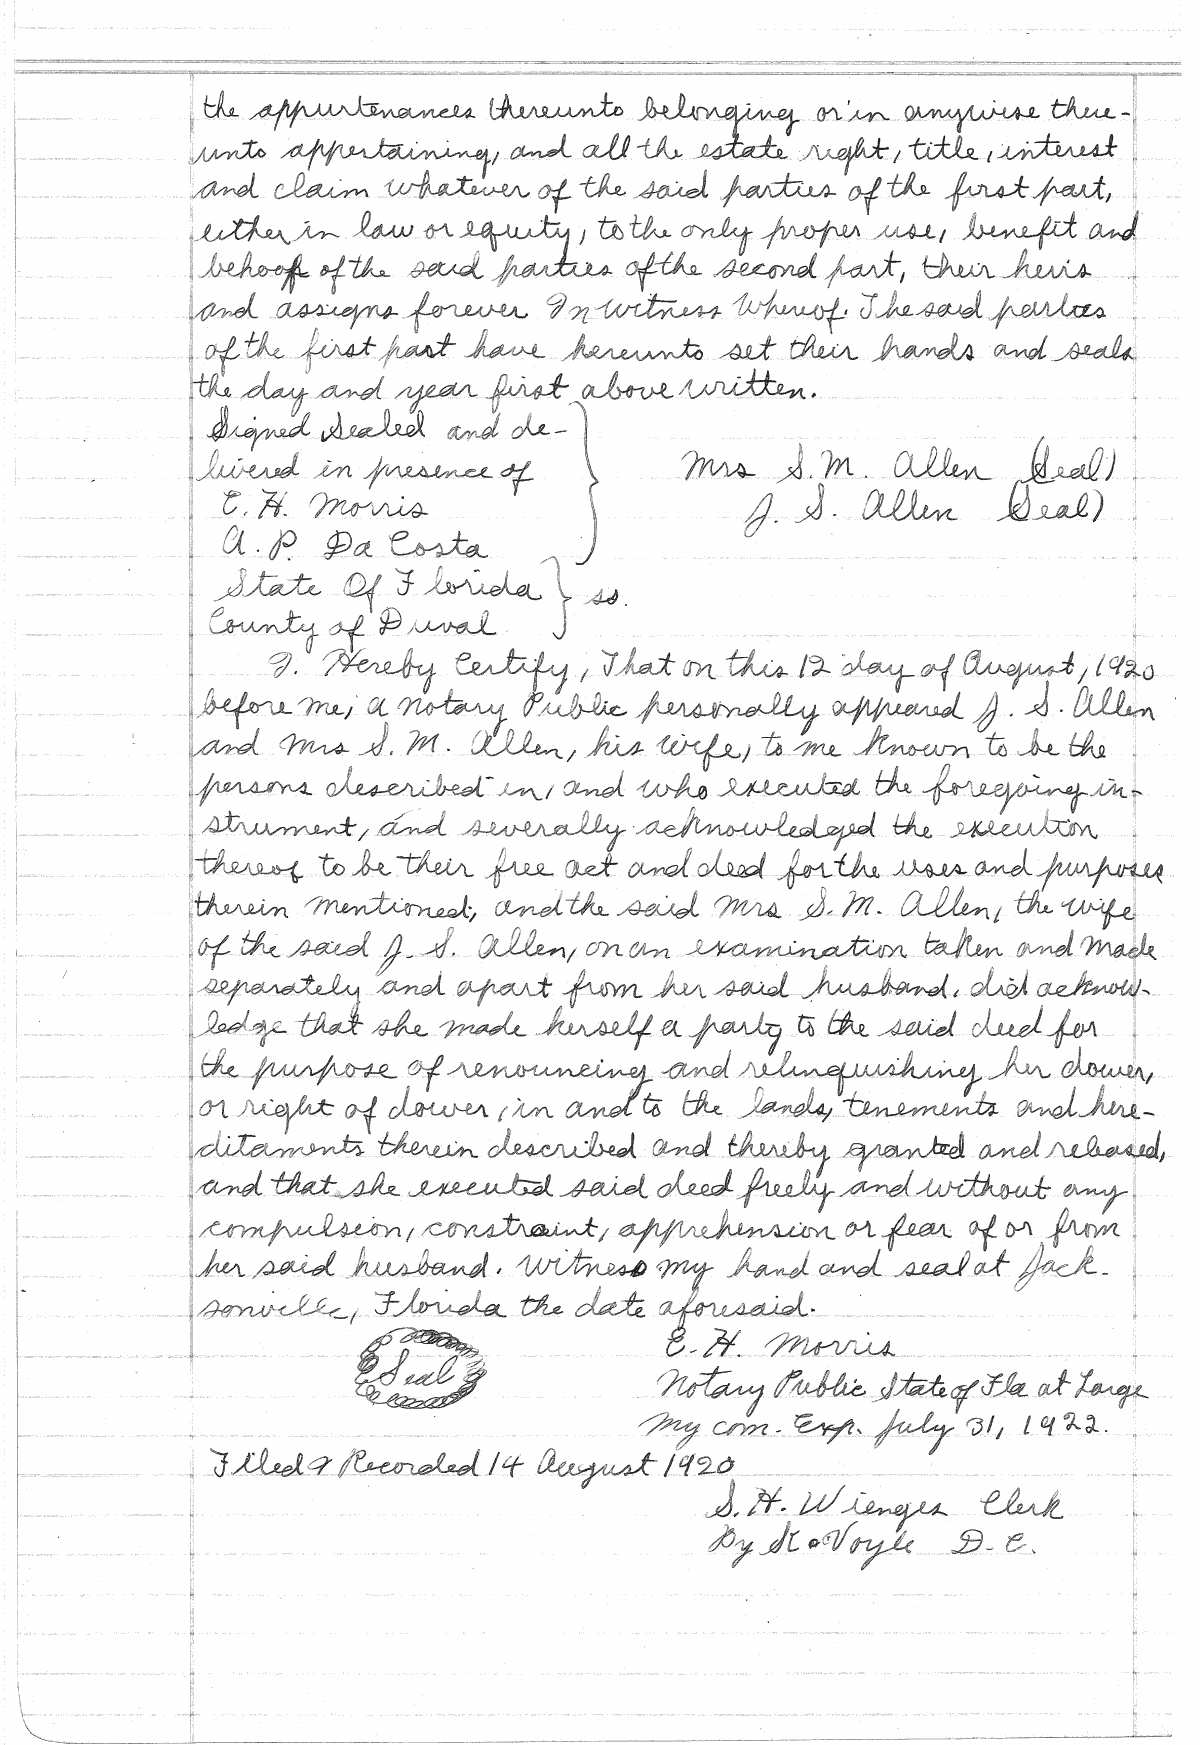 the appurtenances thereunto belonging or in anywise there-
unto appertaining, and all the estate right, title, interest
and claim whatever of the said parties of the first part,
either in law or equity, to the only proper use, benefit and
behoof of the said parties of the second part, their heirs
and assigns forever In Witness Whereof. The said parties
of the first part have hereunto set their hands and seals
the day and year first above written.
Signed Sealed and de-
livered in presence of
Mrs S. M. Allen (Seal)
E. H. Morris
J. S. Allen (Seal)
A. P. Da Costa
State Of Florida } ss.
County of Duval
I. Hereby Certify, That on this 12 day of August, 1920
before me, a Notary Public personally appeared J. S. Allen
and Mrs S. M. Allen, his wife, to me known to be the
persons described in, and who executed the foregoing in-
strument, and severally acknowledged the execution
thereof to be their free act and deed for the uses and purposes
therein mentioned; and the said Mrs S. M. Allen, the wife
of the said J. S. Allen, on an examination taken and made
separately and apart from her said husband, did acknow-
ledge that she made herself a party to the said deed for
the purpose of renouncing and relinquishing her dower,
or right of dower, in and to the lands, tenements and here-
ditaments therein described and thereby granted and released,
and that she executed said deed freely and without any
compulsion, constraint, apprehension or fear of or from
her said husband. Witness my hand and seal at Jack-
sonville, Florida the date aforesaid.
E. H. Morris
Seal
Notary Public State of Fla at Large
My com. Exp. July 31, 1922.
Filed & Recorded 14 August 1920
S. H. Wienges Clerk
By Voyle D. C.